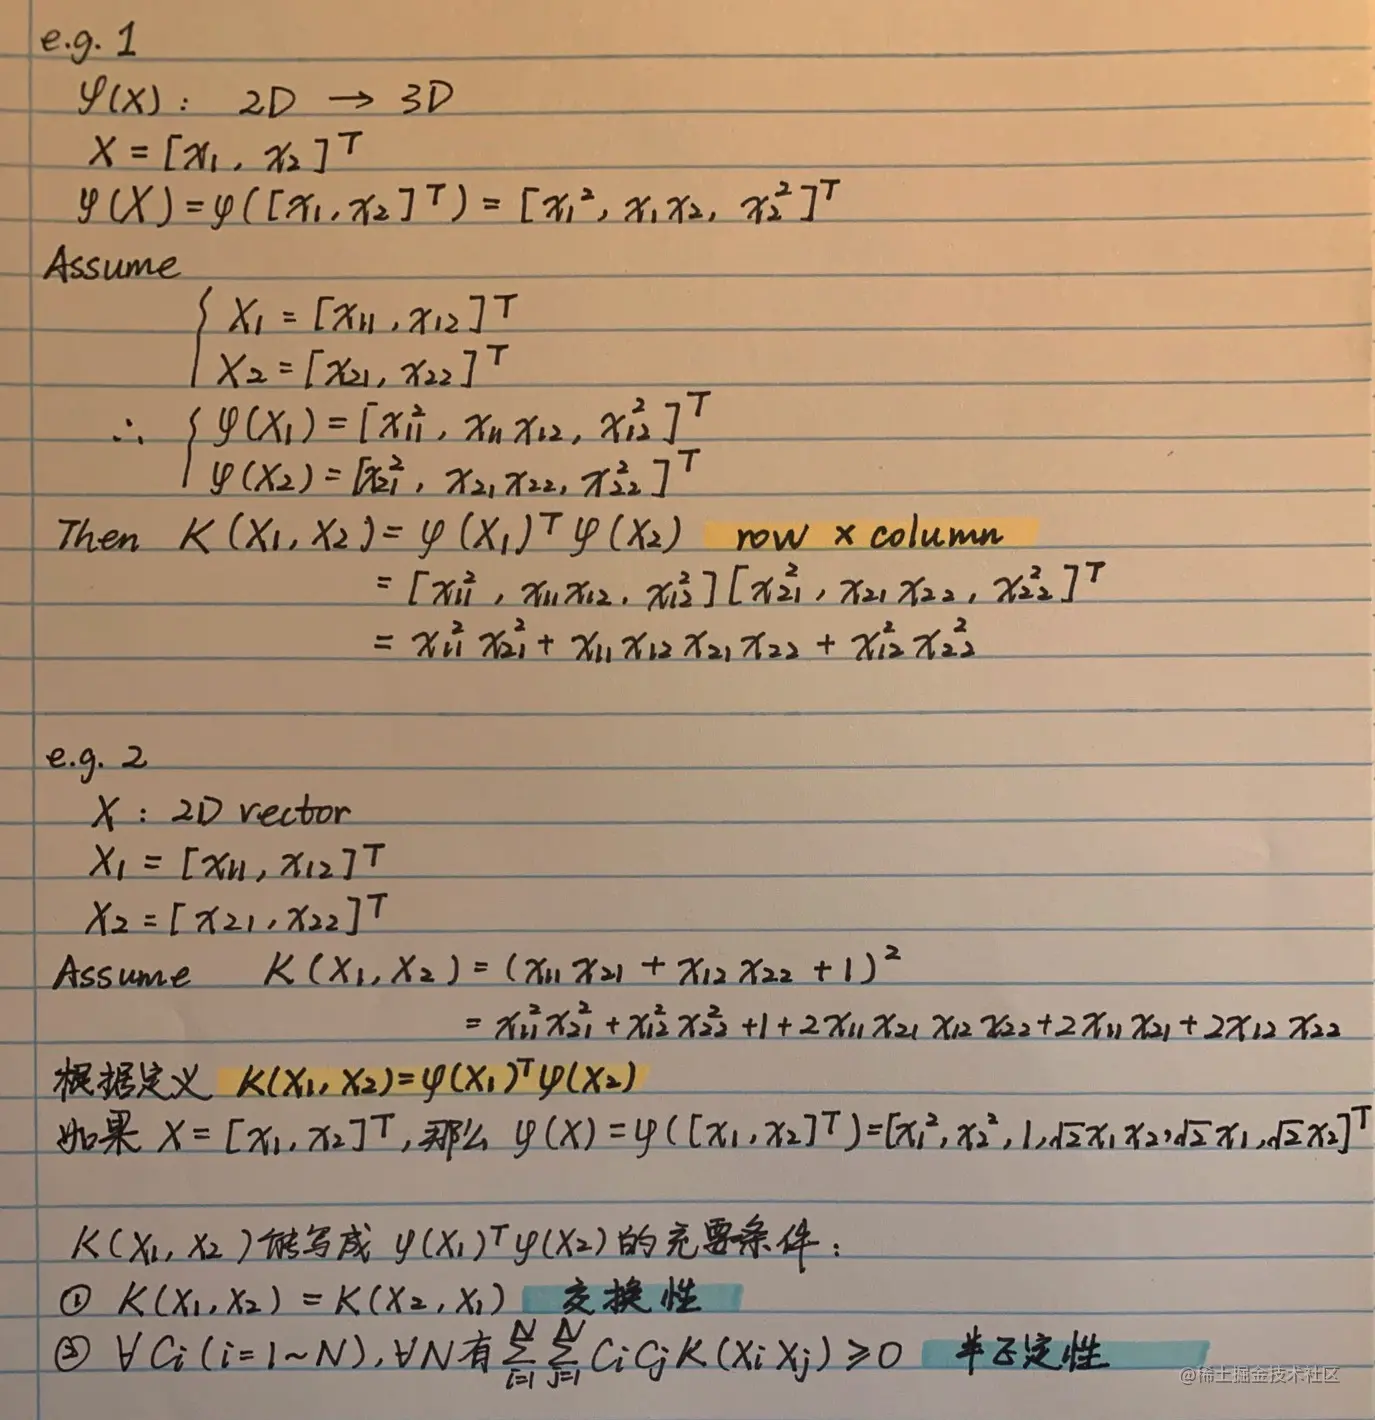 e.g. 1
φ(X): 2D → 3D
X = [x₁, x₂]ᵀ
φ(X) = φ([x₁, x₂]ᵀ) = [x₁², x₁x₂, x₂²]ᵀ
Assume
{ X₁ = [x₁₁, x₁₂]ᵀ
X₂ = [x₂₁, x₂₂]ᵀ
∴ { φ(X₁) = [x₁₁², x₁₁x₁₂, x₁₂²]ᵀ
φ(X₂) = [x₂₁², x₂₁x₂₂, x₂₂²]ᵀ
Then K(X₁, X₂) = φ(X₁)ᵀφ(X₂) row × column
= [x₁₁², x₁₁x₁₂, x₁₂²][x₂₁², x₂₁x₂₂, x₂₂²]ᵀ
= x₁₁²x₂₁² + x₁₁x₁₂x₂₁x₂₂ + x₁₂²x₂₂²
e.g. 2
X : 2D vector
X₁ = [x₁₁, x₁₂]ᵀ
X₂ = [x₂₁, x₂₂]ᵀ
Assume K(X₁, X₂) = (x₁₁x₂₁ + x₁₂x₂₂ + 1)²
= x₁₁²x₂₁² + x₁₂²x₂₂² + 1 + 2x₁₁x₂₁x₁₂x₂₂ + 2x₁₁x₂₁ + 2x₁₂x₂₂
根据定义 K(X₁, X₂) = φ(X₁)ᵀφ(X₂)
如果 X = [x₁, x₂]ᵀ, 那么 φ(X) = φ([x₁, x₂]ᵀ) = [x₁², x₂², 1, √2x₁x₂, √2x₁, √2x₂]ᵀ
K(X₁, X₂) 能写成 φ(X₁)ᵀφ(X₂) 的充要条件:
① K(X₁, X₂) = K(X₂, X₁) 交换性
② ∀Cᵢ (i=1~N), ∀N 有 ∑ᵢ₌₁ᴺ ∑ⱼ₌₁ᴺ CᵢCⱼK(XᵢXⱼ) ≥ 0 半正定性
@稀土掘金技术社区